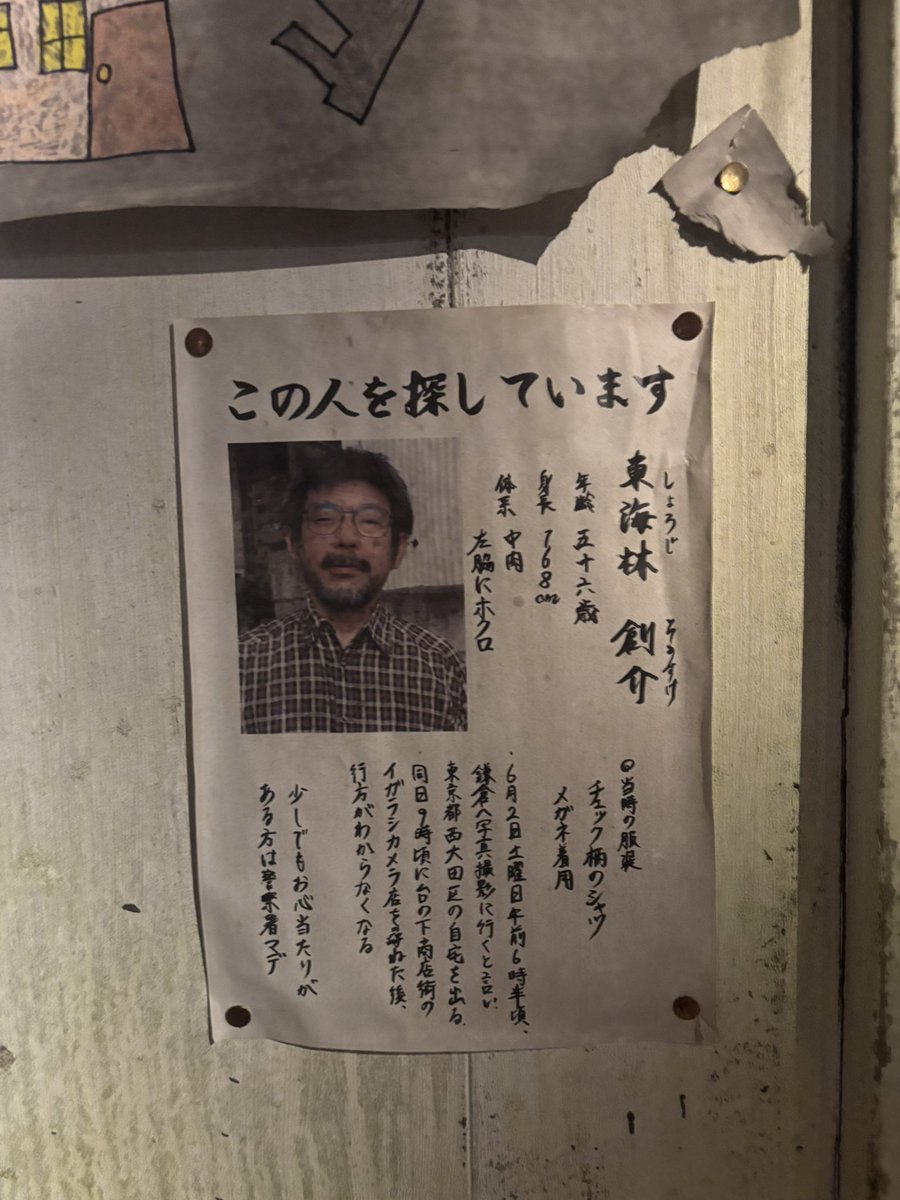 この人を探しています
東海林 創介
しょうじ そうすけ
年齢 五十六歳
身長 168cm
体系 中肉
左脇にホクロ
◎当時の服装
チェック柄のシャツ
メガネ着用
・6月2日土曜日午前6時半頃、
鎌倉へ写真撮影に行くと言い、
東京都西大田区の自宅を出る。
同日9時頃に台の下商店街の
イガラシカメラ店を尋ねた後、
行方がわからなくなる
少しでもお心当たりが
ある方は警察署マデ